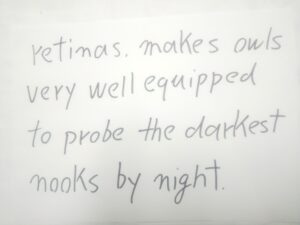 retinas. makes owls
very well equipped
to probe the darkest
nooks by night.